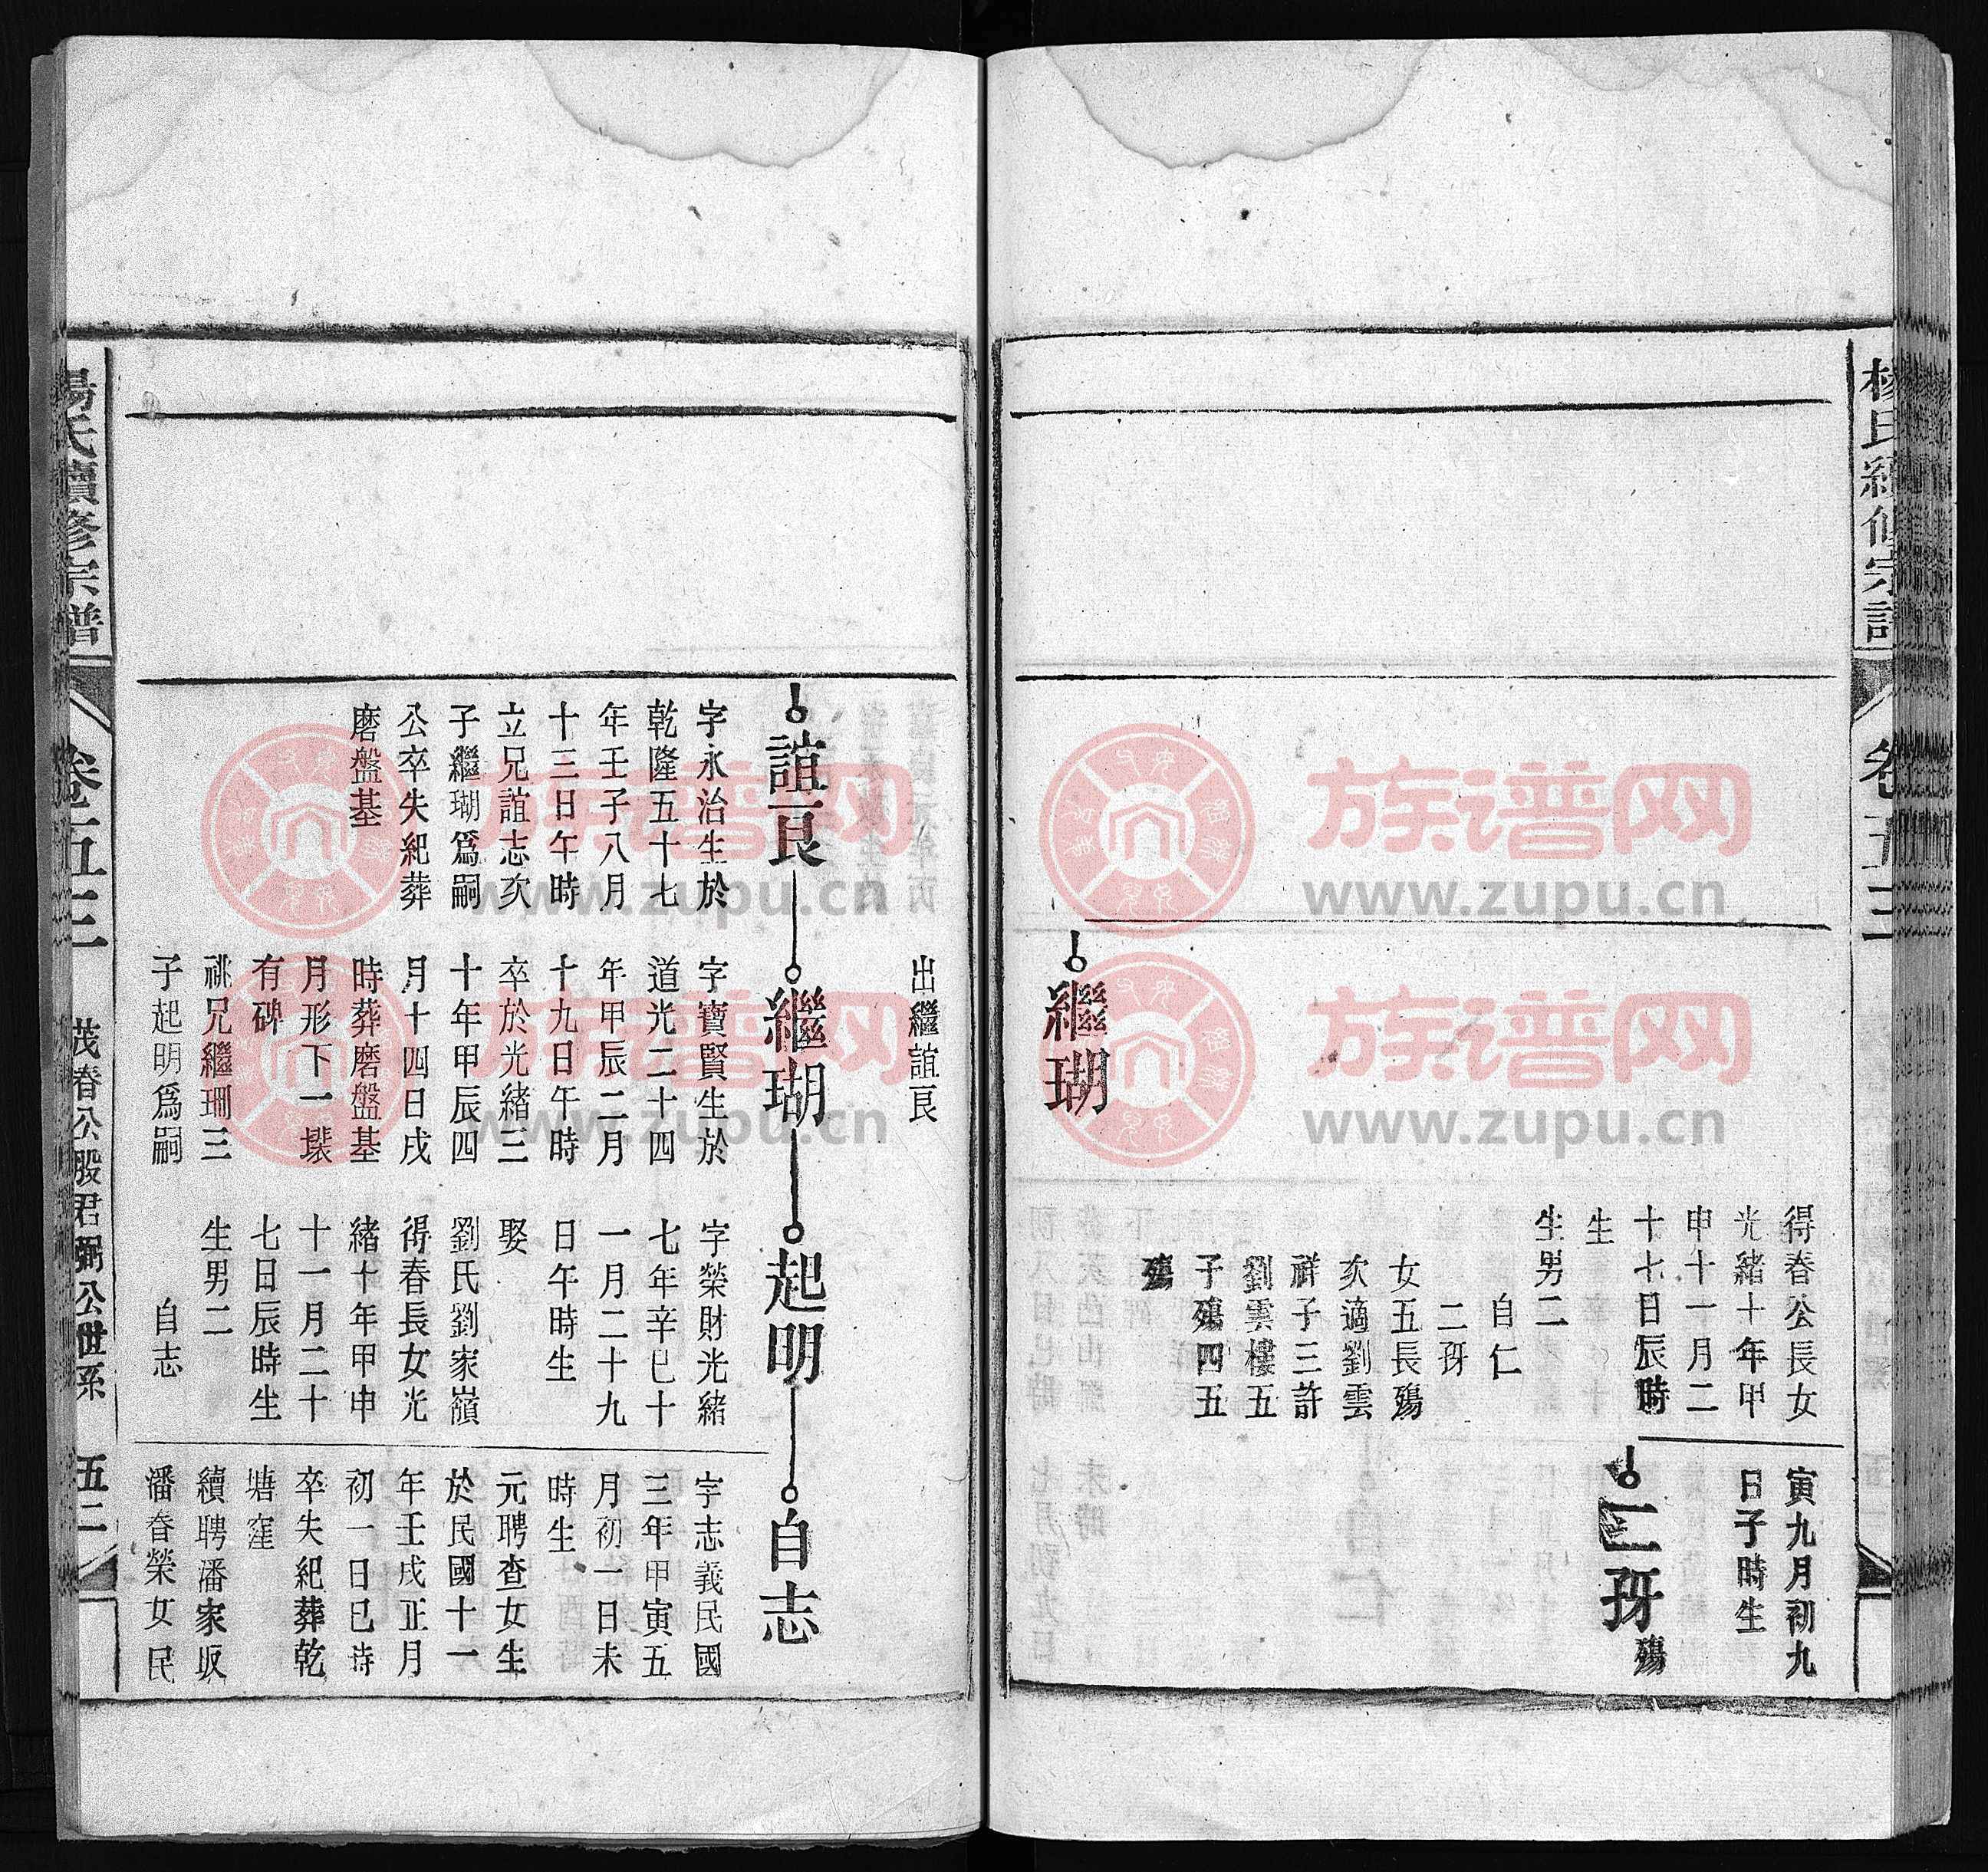 楊氏續修宗譜
卷五三
繼瑚
得春公長女
光緒十年甲
申十一月二
十七日辰時
生
生男二
自仁
二孖
女五長殤
次適劉雲
祥子三許
劉雲樓五
子殤四五
殤
寅九月初九
日子時生
二孖
殤
出繼誼良
誼良
字永治生於
乾隆五十七
年壬子八月
十三日午時
立兄誼志次
子繼瑚爲嗣
公卒失紀葬
磨盤基
繼瑚
字寶賢生於
道光二十四
年甲辰二月
十九日午時
卒於光緒三
十年甲辰四
月十四日戌
時葬磨盤基
月形下一塝
有碑
祧兄繼珊三
子起明爲嗣
起明
字榮財光緒
七年辛巳十
一月二十九
日午時生
娶
劉氏劉家嶺
得春長女光
緒十年甲申
十一月二十
七日辰時生
生男二
自志
自志
字志義民國
三年甲寅五
月初一日未
時生
元聘查女生
於民國十一
年壬戌正月
初一日巳時
卒失紀葬乾
塘窪
續聘潘家坂
潘春榮女民
楊氏續修宗譜
卷五三
茂春公股君弼公世系
五二
族谱网
www.zupu.cn
族谱网
www.zupu.cn
族谱网
www.zupu.cn
族谱网
www.zupu.cn